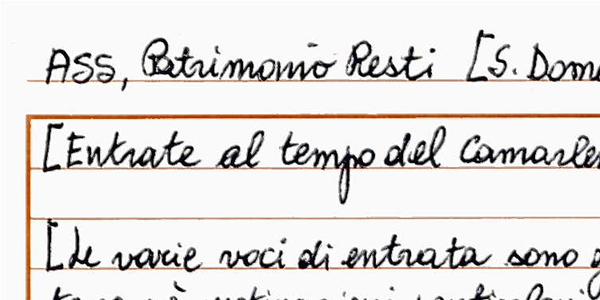 ASS, Patrimonio Resti [S. Dome
[Entrate al tempo del Camarlen
[Le varie voci di entrata sono g